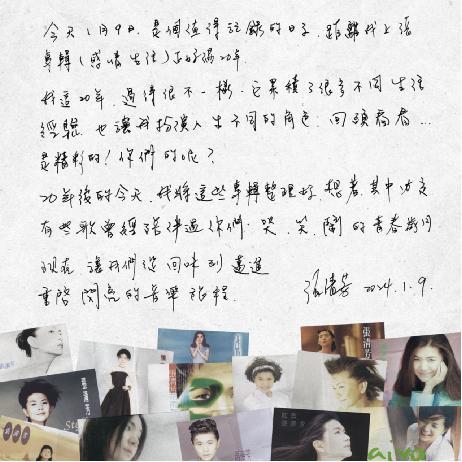 今天1月9日,是個值得記錄的日子,距離我上張
專輯(感情生活)正好滿20年.
我這20年,過得很不一樣.它累積了很多不同生活
經驗,也讓我扮演人生不同的角色.回頭看看...
是精彩的!你們的呢?
20年後的今天,我將這些專輯整理好,想著,其中肯定
有些歌曾經陪伴過你們,哭、笑、鬧的青春歲月
現在讓我們從回味到邁進
重啓閃亮的音樂旅程.
張清芳 2024.1.9.
張清芳